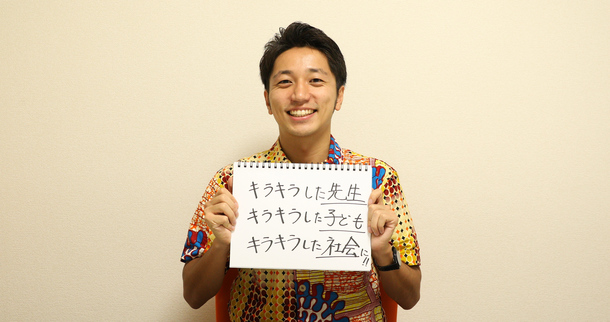 キラキラした先生
キラキラした子ども
キラキラした社会に!!